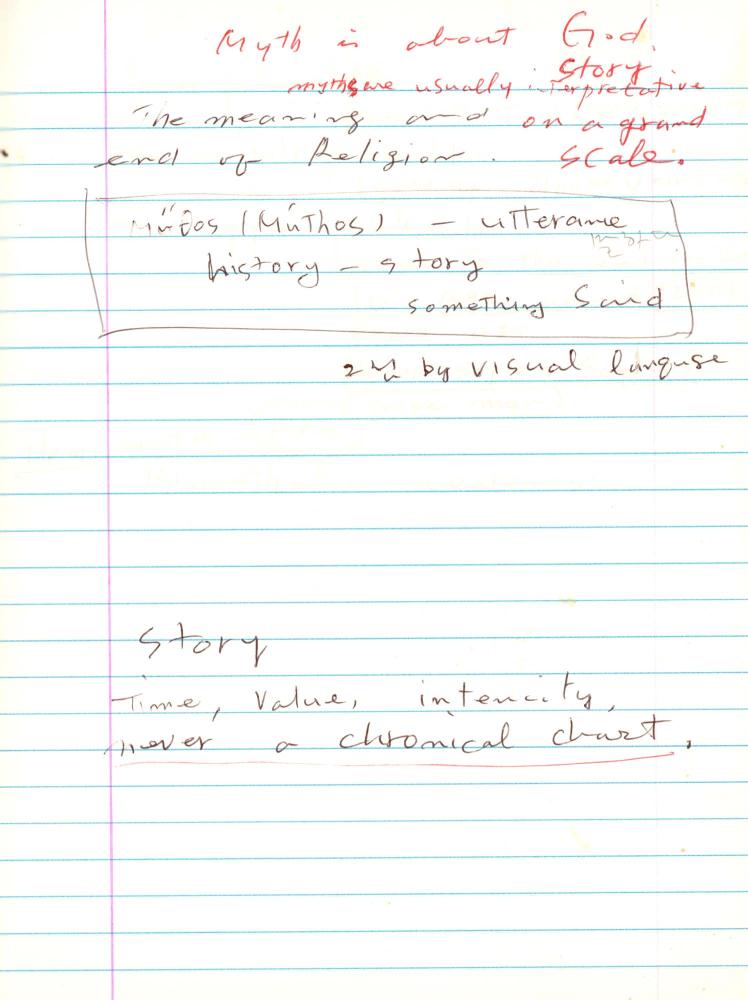 Myth is about God.
story
myths are usually interpretative
The meaning and on a grand
end of Religion. scale.
(Múthos) – utterance
history – story
something said
by visual languse
story
Time, Value, intencity,
never a chronical chart.